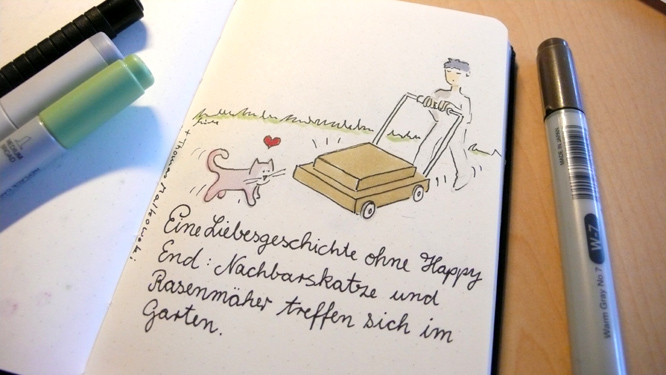 Eine Liebesgeschichte ohne Happy
End: Nachbarskatze und
Rasenmäher treffen sich im
Garten.
W-7
Warm Gray No.7